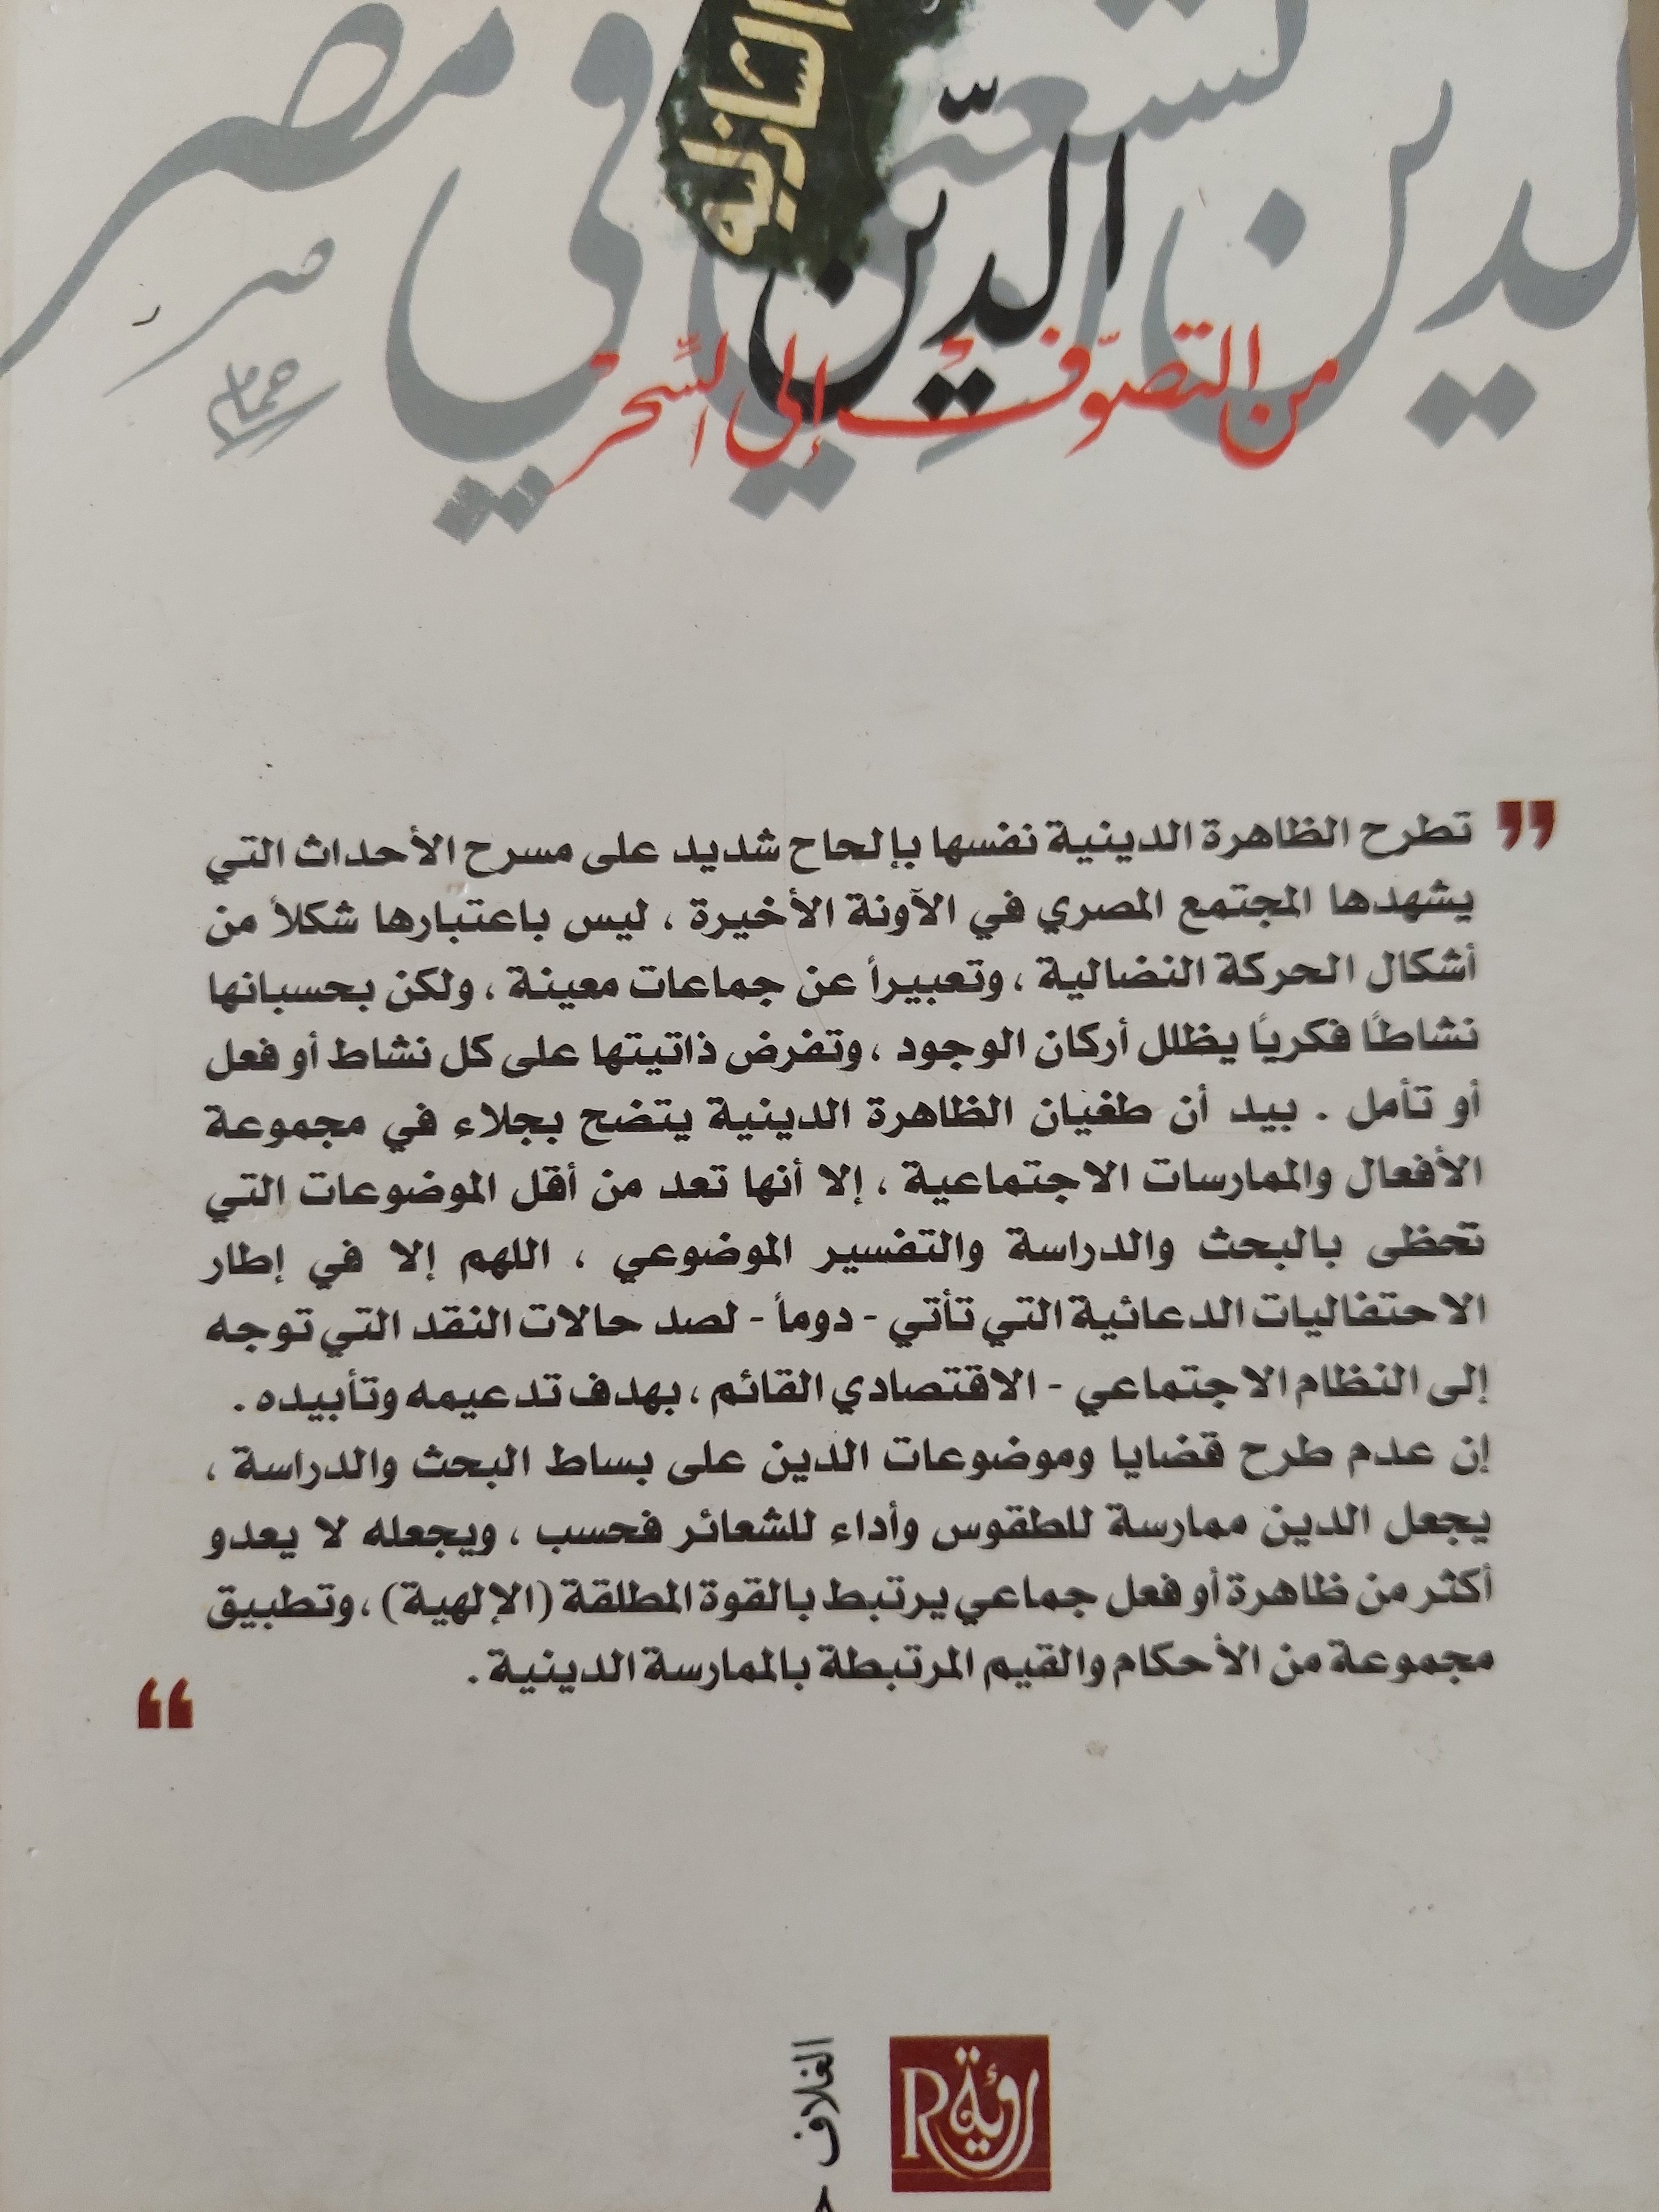 الشاذلية
في مصر
الدين
من التصوّف إلى السِّحر
تطرح الظاهرة الدينية نفسها بإلحاح شديد على مسرح الأحداث التي
يشهدها المجتمع المصري في الآونة الأخيرة ، ليس باعتبارها شكلاً من
أشكال الحركة النضالية ، وتعبيراً عن جماعات معينة ، ولكن بحسبانها
نشاطًا فكريًا يظلل أركان الوجود ، وتفرض ذاتيتها على كل نشاط أو فعل
أو تأمل . بيد أن طغيان الظاهرة الدينية يتضح بجلاء في مجموعة
الأفعال والممارسات الاجتماعية ، إلا أنها تعد من أقل الموضوعات التي
تحظى بالبحث والدراسة والتفسير الموضوعي ، اللهم إلا في إطار
الاحتفاليات الدعائية التي تأتي - دوماً - لصد حالات النقد التي توجه
إلى النظام الاجتماعي - الاقتصادي القائم ، بهدف تدعيمه وتأبيده .
إن عدم طرح قضايا وموضوعات الدين على بساط البحث والدراسة ،
يجعل الدين ممارسة للطقوس وأداء للشعائر فحسب ، ويجعله لا يعدو
أكثر من ظاهرة أو فعل جماعي يرتبط بالقوة المطلقة (الإلهية) ، وتطبيق
مجموعة من الأحكام والقيم المرتبطة بالممارسة الدينية .
رؤية R
الغلاف